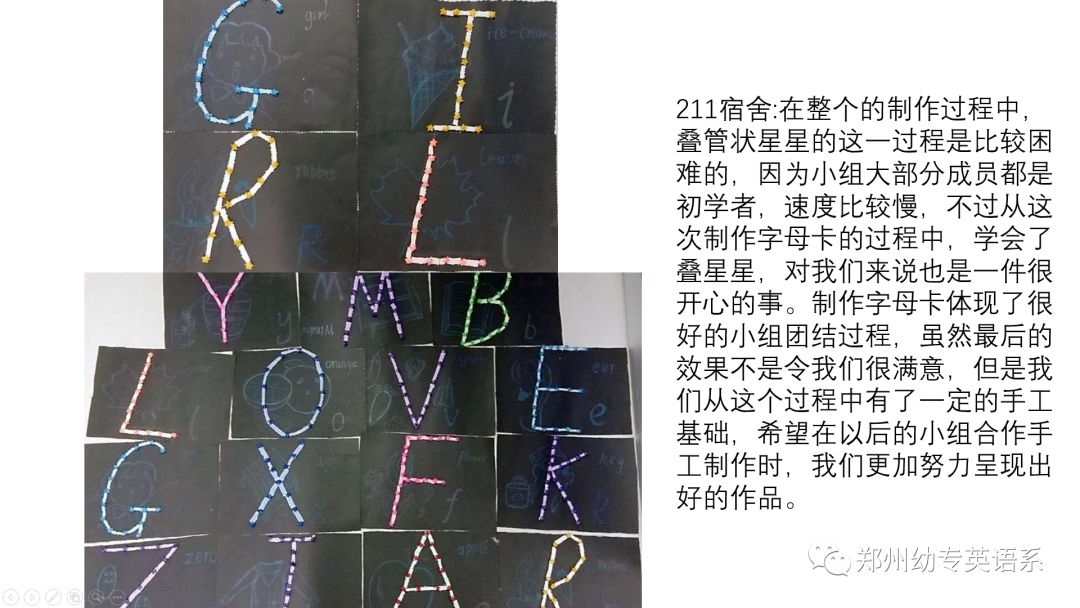 G
girl
g
I
ice-cream
i
R
rabbit
R
L
leave
l
Y
y
M
M
B
b
L
l
O
orange
o
V
E
ear
e
G
X
F
f
K
key
k
Z
zero
I
A
apple
R
211宿舍:在整个的制作过程中，
叠管状星星的这一过程是比较困
难的，因为小组大部分成员都是
初学者，速度比较慢，不过从这
次制作字母卡的过程中，学会了
叠星星，对我们来说也是一件很
开心的事。制作字母卡体现了很
好的小组团结过程，虽然最后的
效果不是令我们很满意，但是我
们从这个过程中有了一定的手工
基础，希望在以后的小组合作手
工制作时，我们更加努力呈现出
好的作品。
郑州幼专英语系